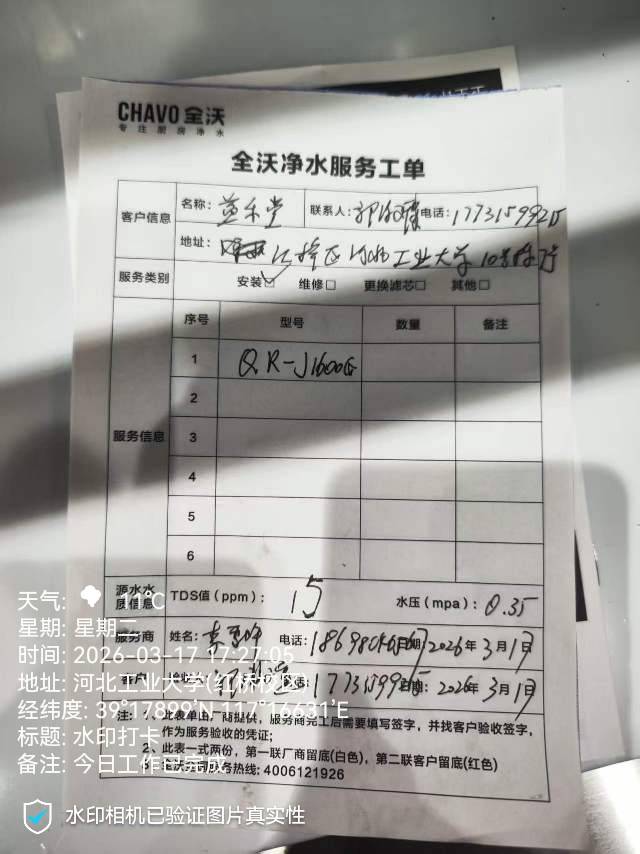 CHAVO 全沃
专注厨房净水
全沃净水服务工单
客户信息 名称: 联系人: 电话: 177315992
地址: 红桥区河北工业大学10号
服务类别 安装☑ 维修□ 更换滤芯□ 其他□
服务信息 序号 型号 数量 备注
1 QR-J1600G
2
3
4
5
6
源水水质信息 TDS值(ppm): 15 水压(mpa): 0.35
服务商 姓名: 电话: 2026年3月17
客户 2026年3月17
注: 1、此表单由厂商提供,服务商完工后需要填写签字,并找客户验收签字,
作为服务验收的凭证;
2、此表一式两份,第一联厂商留底(白色),第二联客户留底(红色)
服务热线: 4006121926
天气: 11℃
星期: 星期二
时间: 2026-03-17 17:27:05
地址: 河北工业大学(红桥校区)
经纬度: 39°17899'N,117°16631'E
标题: 水印打卡
备注: 今日工作已完成
水印相机已验证图片真实性